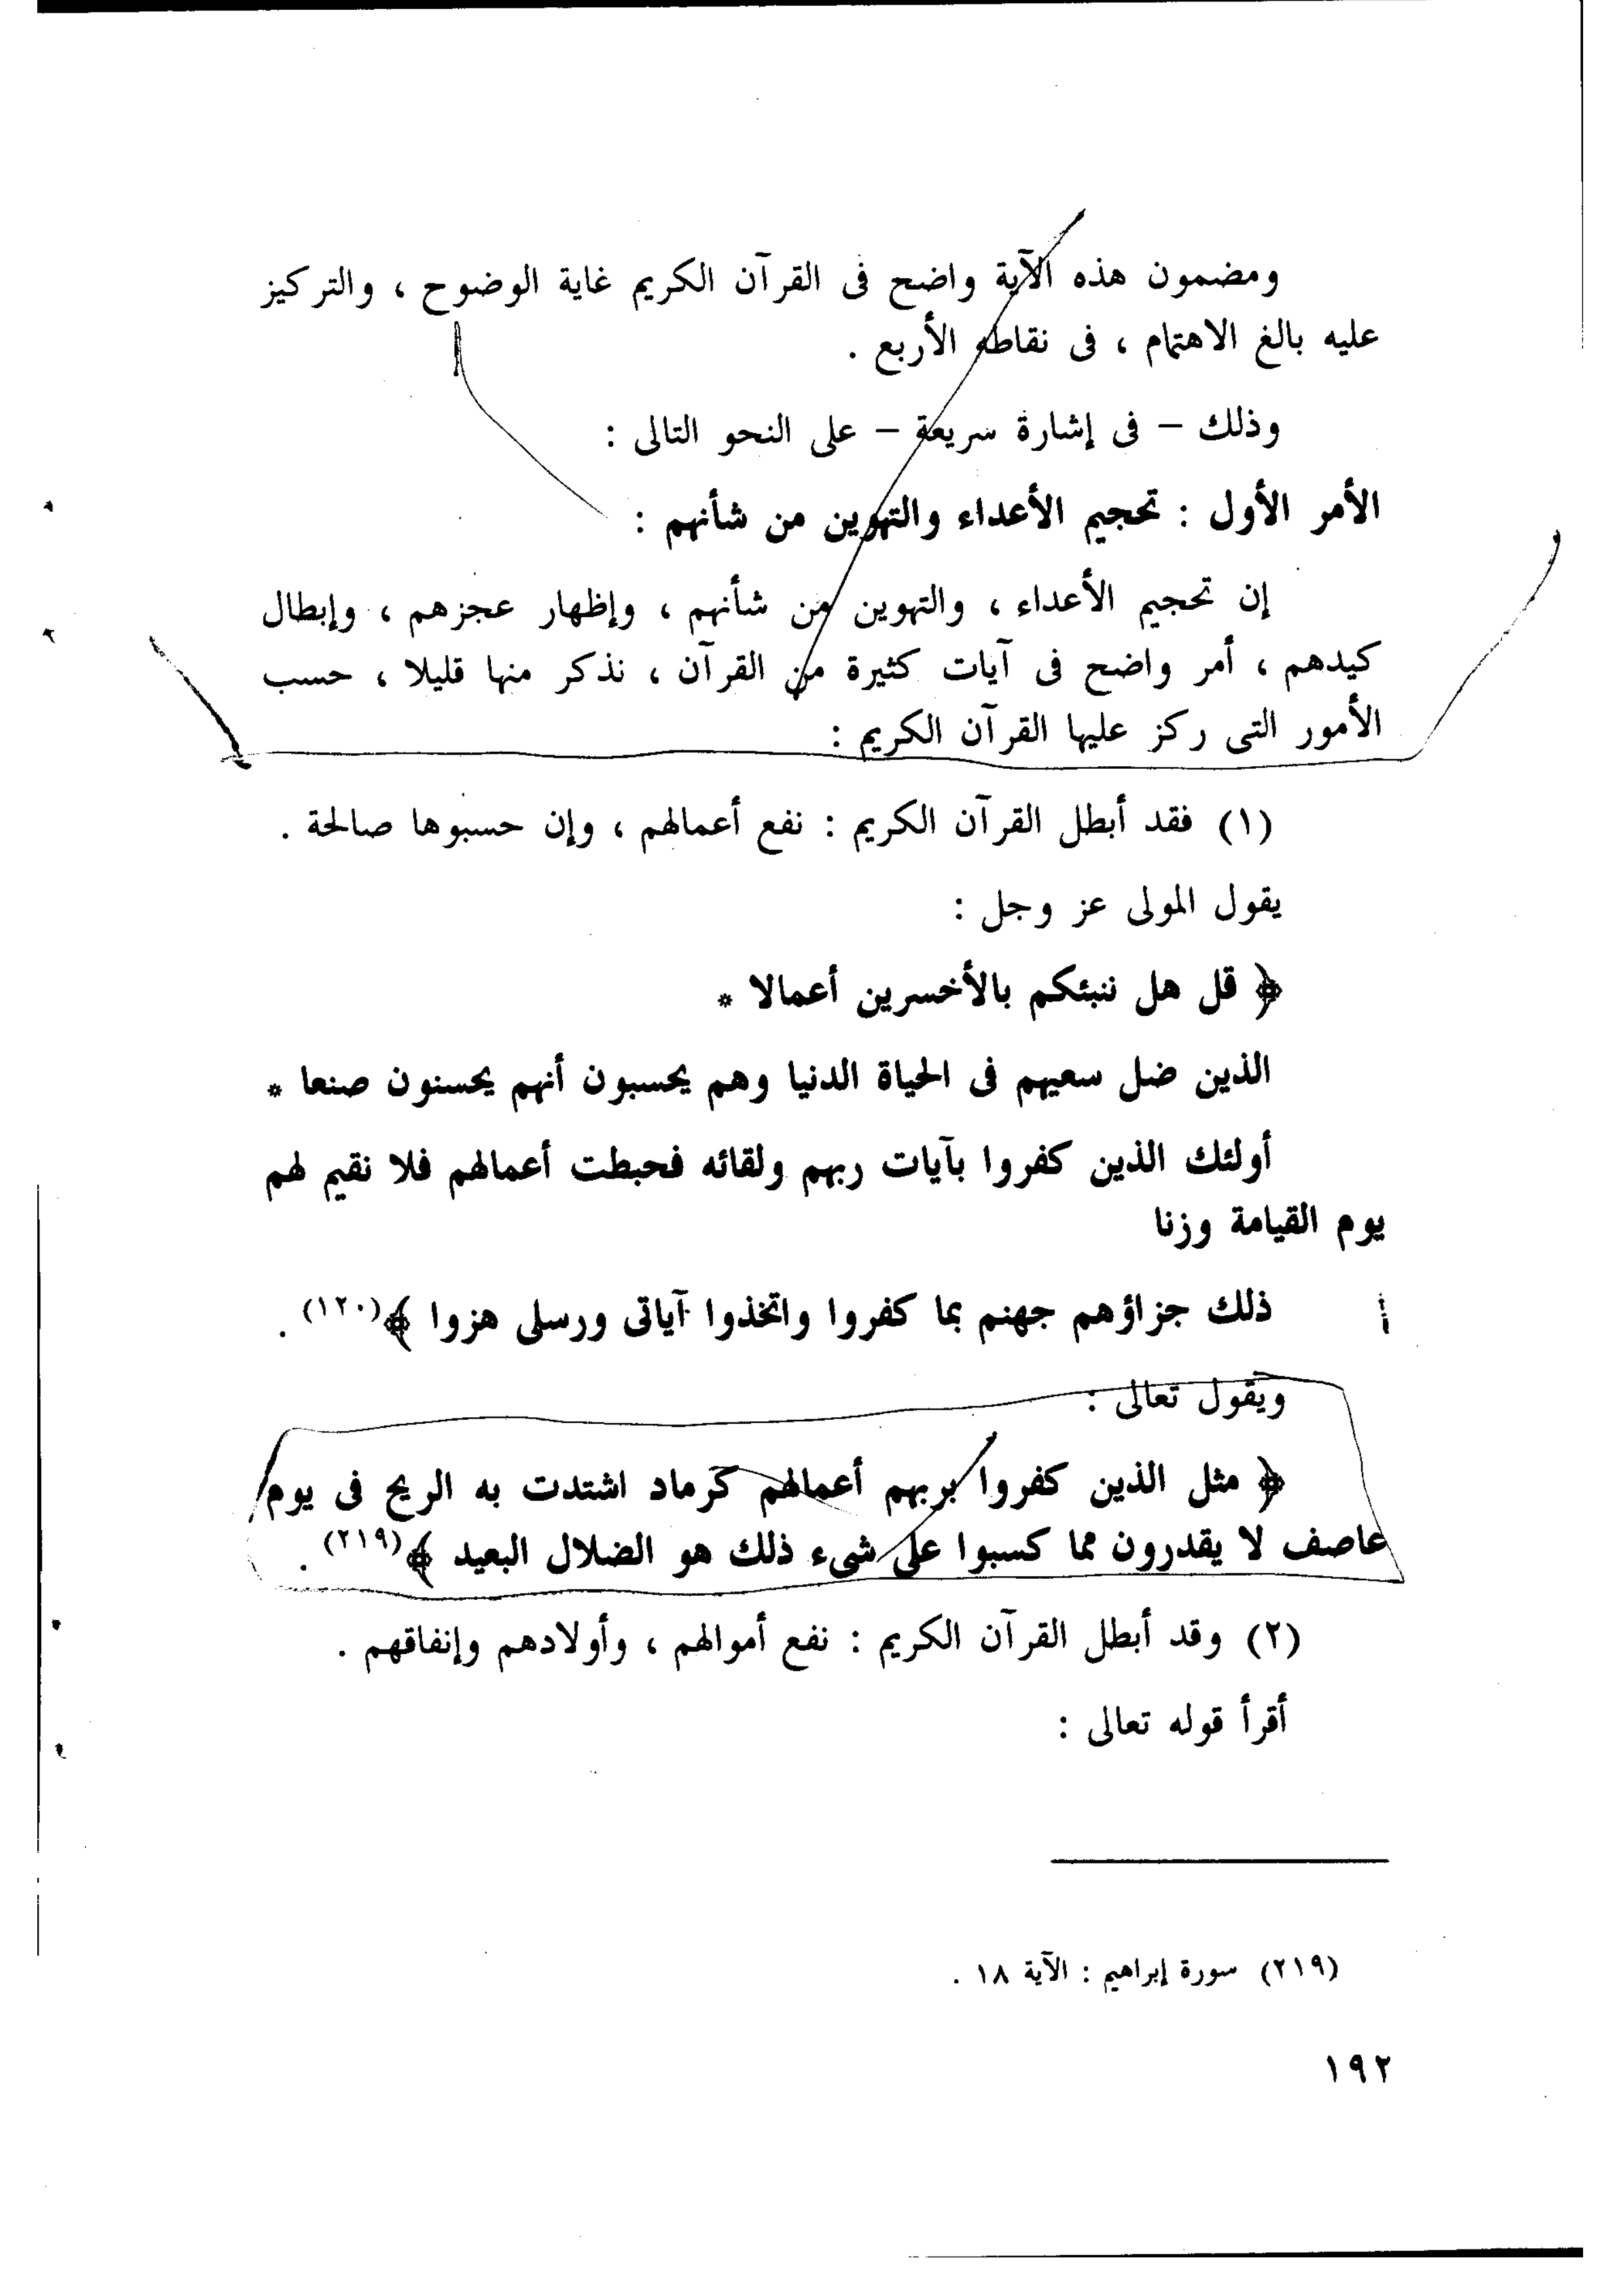 ومضمون هذه الآية واضح فى القرآن الكريم غاية الوضوح ، والتركيز
عليه بالغ الاهتمام ، فى نقاطه الأربع .
وذلك – فى إشارة سريعة – على النحو التالى :
الأمر الأول : تحجيم الأعداء والتهوين من شأنهم :
إن تحجيم الأعداء ، والتهوين من شأنهم ، وإظهار عجزهم ، وإبطال
كيدهم ، أمر واضح فى آيات كثيرة من القرآن ، نذكر منها قليلا ، حسب
الأمور التى ركز عليها القرآن الكريم :
(١) فقد أبطل القرآن الكريم : نفع أعمالهم ، وإن حسبوها صالحة .
يقول المولى عز وجل :
﴿ قل هل ننبئكم بالأخسرين أعمالا *
الذين ضل سعيهم فى الحياة الدنيا وهم يحسبون أنهم يحسنون صنعا *
أولئك الذين كفروا بآيات ربهم ولقائه فحبطت أعمالهم فلا نقيم لهم
يوم القيامة وزنا
ذلك جزاؤهم جهنم بما كفروا واتخذوا آياتى ورسلى هزوا ﴾(١٢٠) .
ويقول تعالى :
﴿ مثل الذين كفروا بربهم أعمالهم كرماد اشتدت به الريح فى يوم
عاصف لا يقدرون مما كسبوا على شىء ذلك هو الضلال البعيد ﴾(٢١٩) .
(٢) وقد أبطل القرآن الكريم : نفع أموالهم ، وأولادهم وإنفاقهم .
أقرأ قوله تعالى :
(٢١٩) سورة إبراهيم : الآية ١٨ .
١٩٢